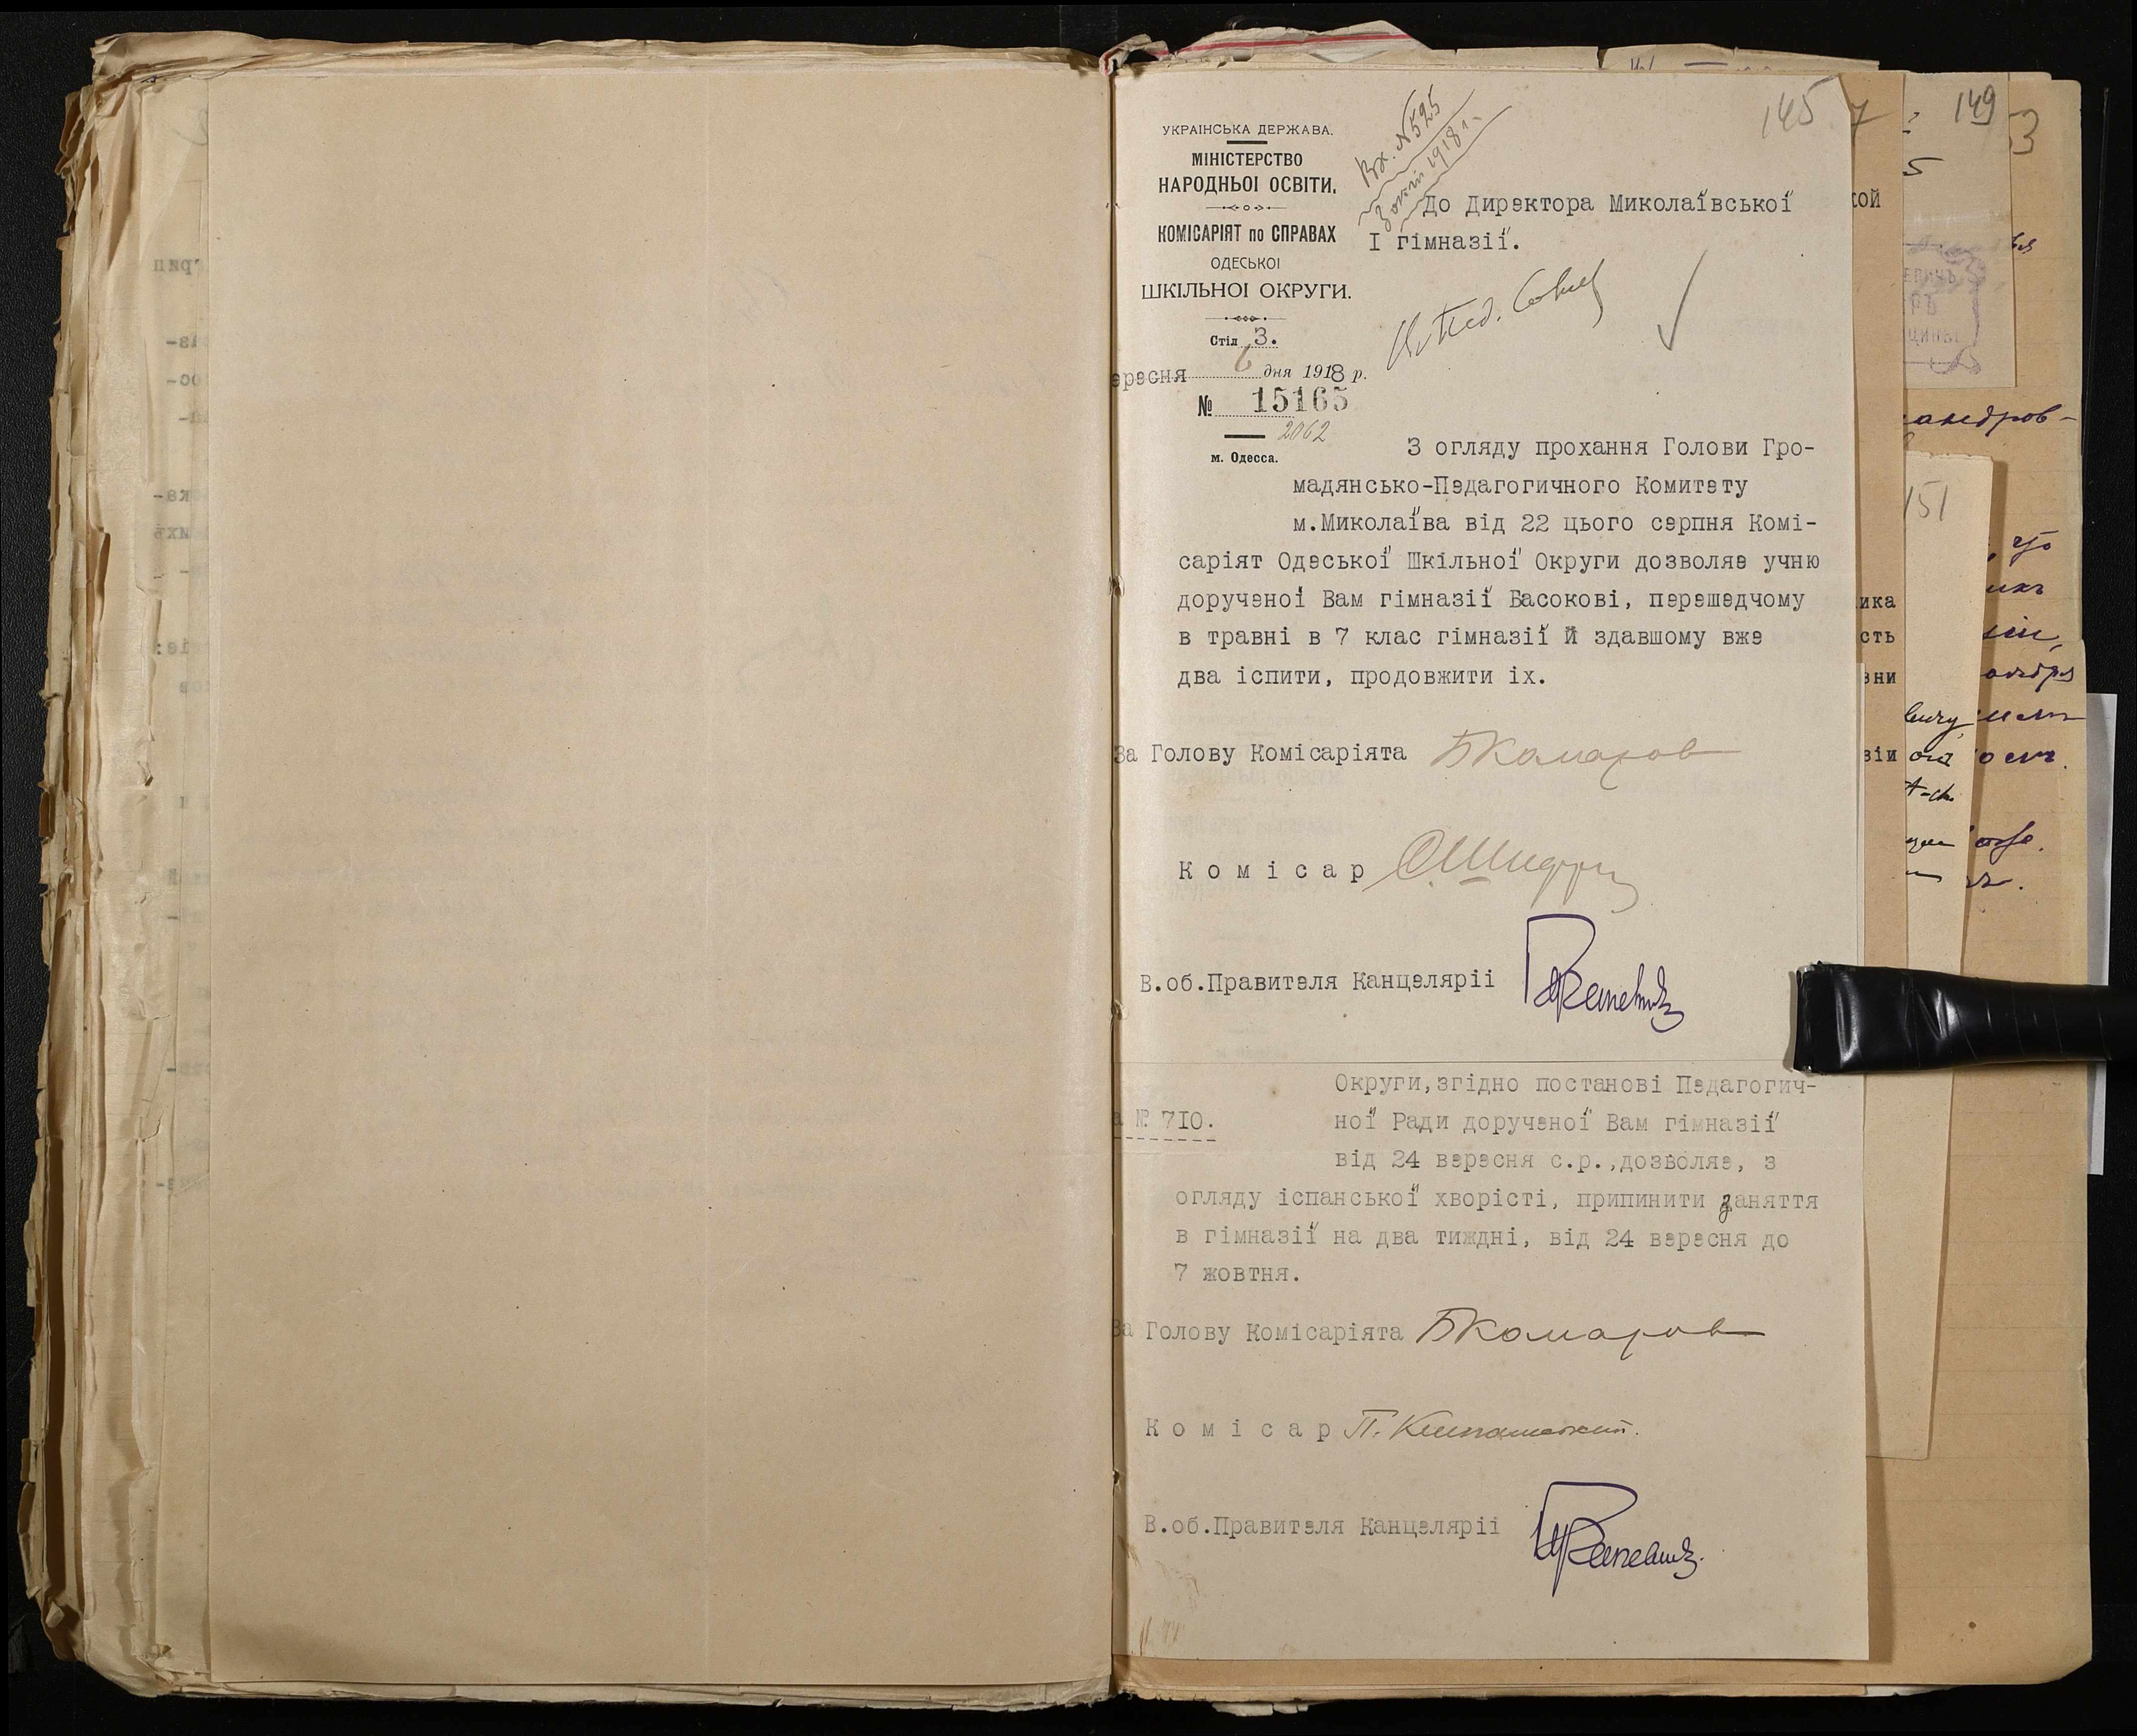 145
149
151
УКРАІНСЬКА ДЕРЖАВА.
МІНІСТЕРСТВО
НАРОДНЬОІ ОСВІТИ.
КОМІСАРІЯТ по СПРАВАХ
ОДЕСЬКОІ
ШКІЛЬНОІ ОКРУГИ.
Стіл 3.
ересня 6 дня 1918 р.
№ 15165
2062
м. Одесса.
Вх. № 525
1918 г.
До Директора Миколаївської
І гімназії.
З огляду прохання Голови Гро-
мадянсько-Педагогичного Комитету
м.Миколаїва від 22 цього серпня Комі-
саріят Одеської Шкільної Округи дозволяе учню
дорученої Вам гімназії Басокові, перешедчому
в травні в 7 клас гімназії й здавшому вже
два іспити, продовжити іх.
За Голову Комісаріята БКомаров
Комісар
В.об.Правителя Канцеляріі
Округи,згідно постанові Педагогич-
а № 7ІО.
ної Ради дорученої Вам гімназії
від 24 вересня с.р.,дозволяе, з
огляду іспанської хворісті, припинити заняття
в гімназії на два тиждні, від 24 вересня до
7 жовтня.
За Голову Комісаріята БКомаров
Комісар П.
В.об.Правителя Канцеляріі